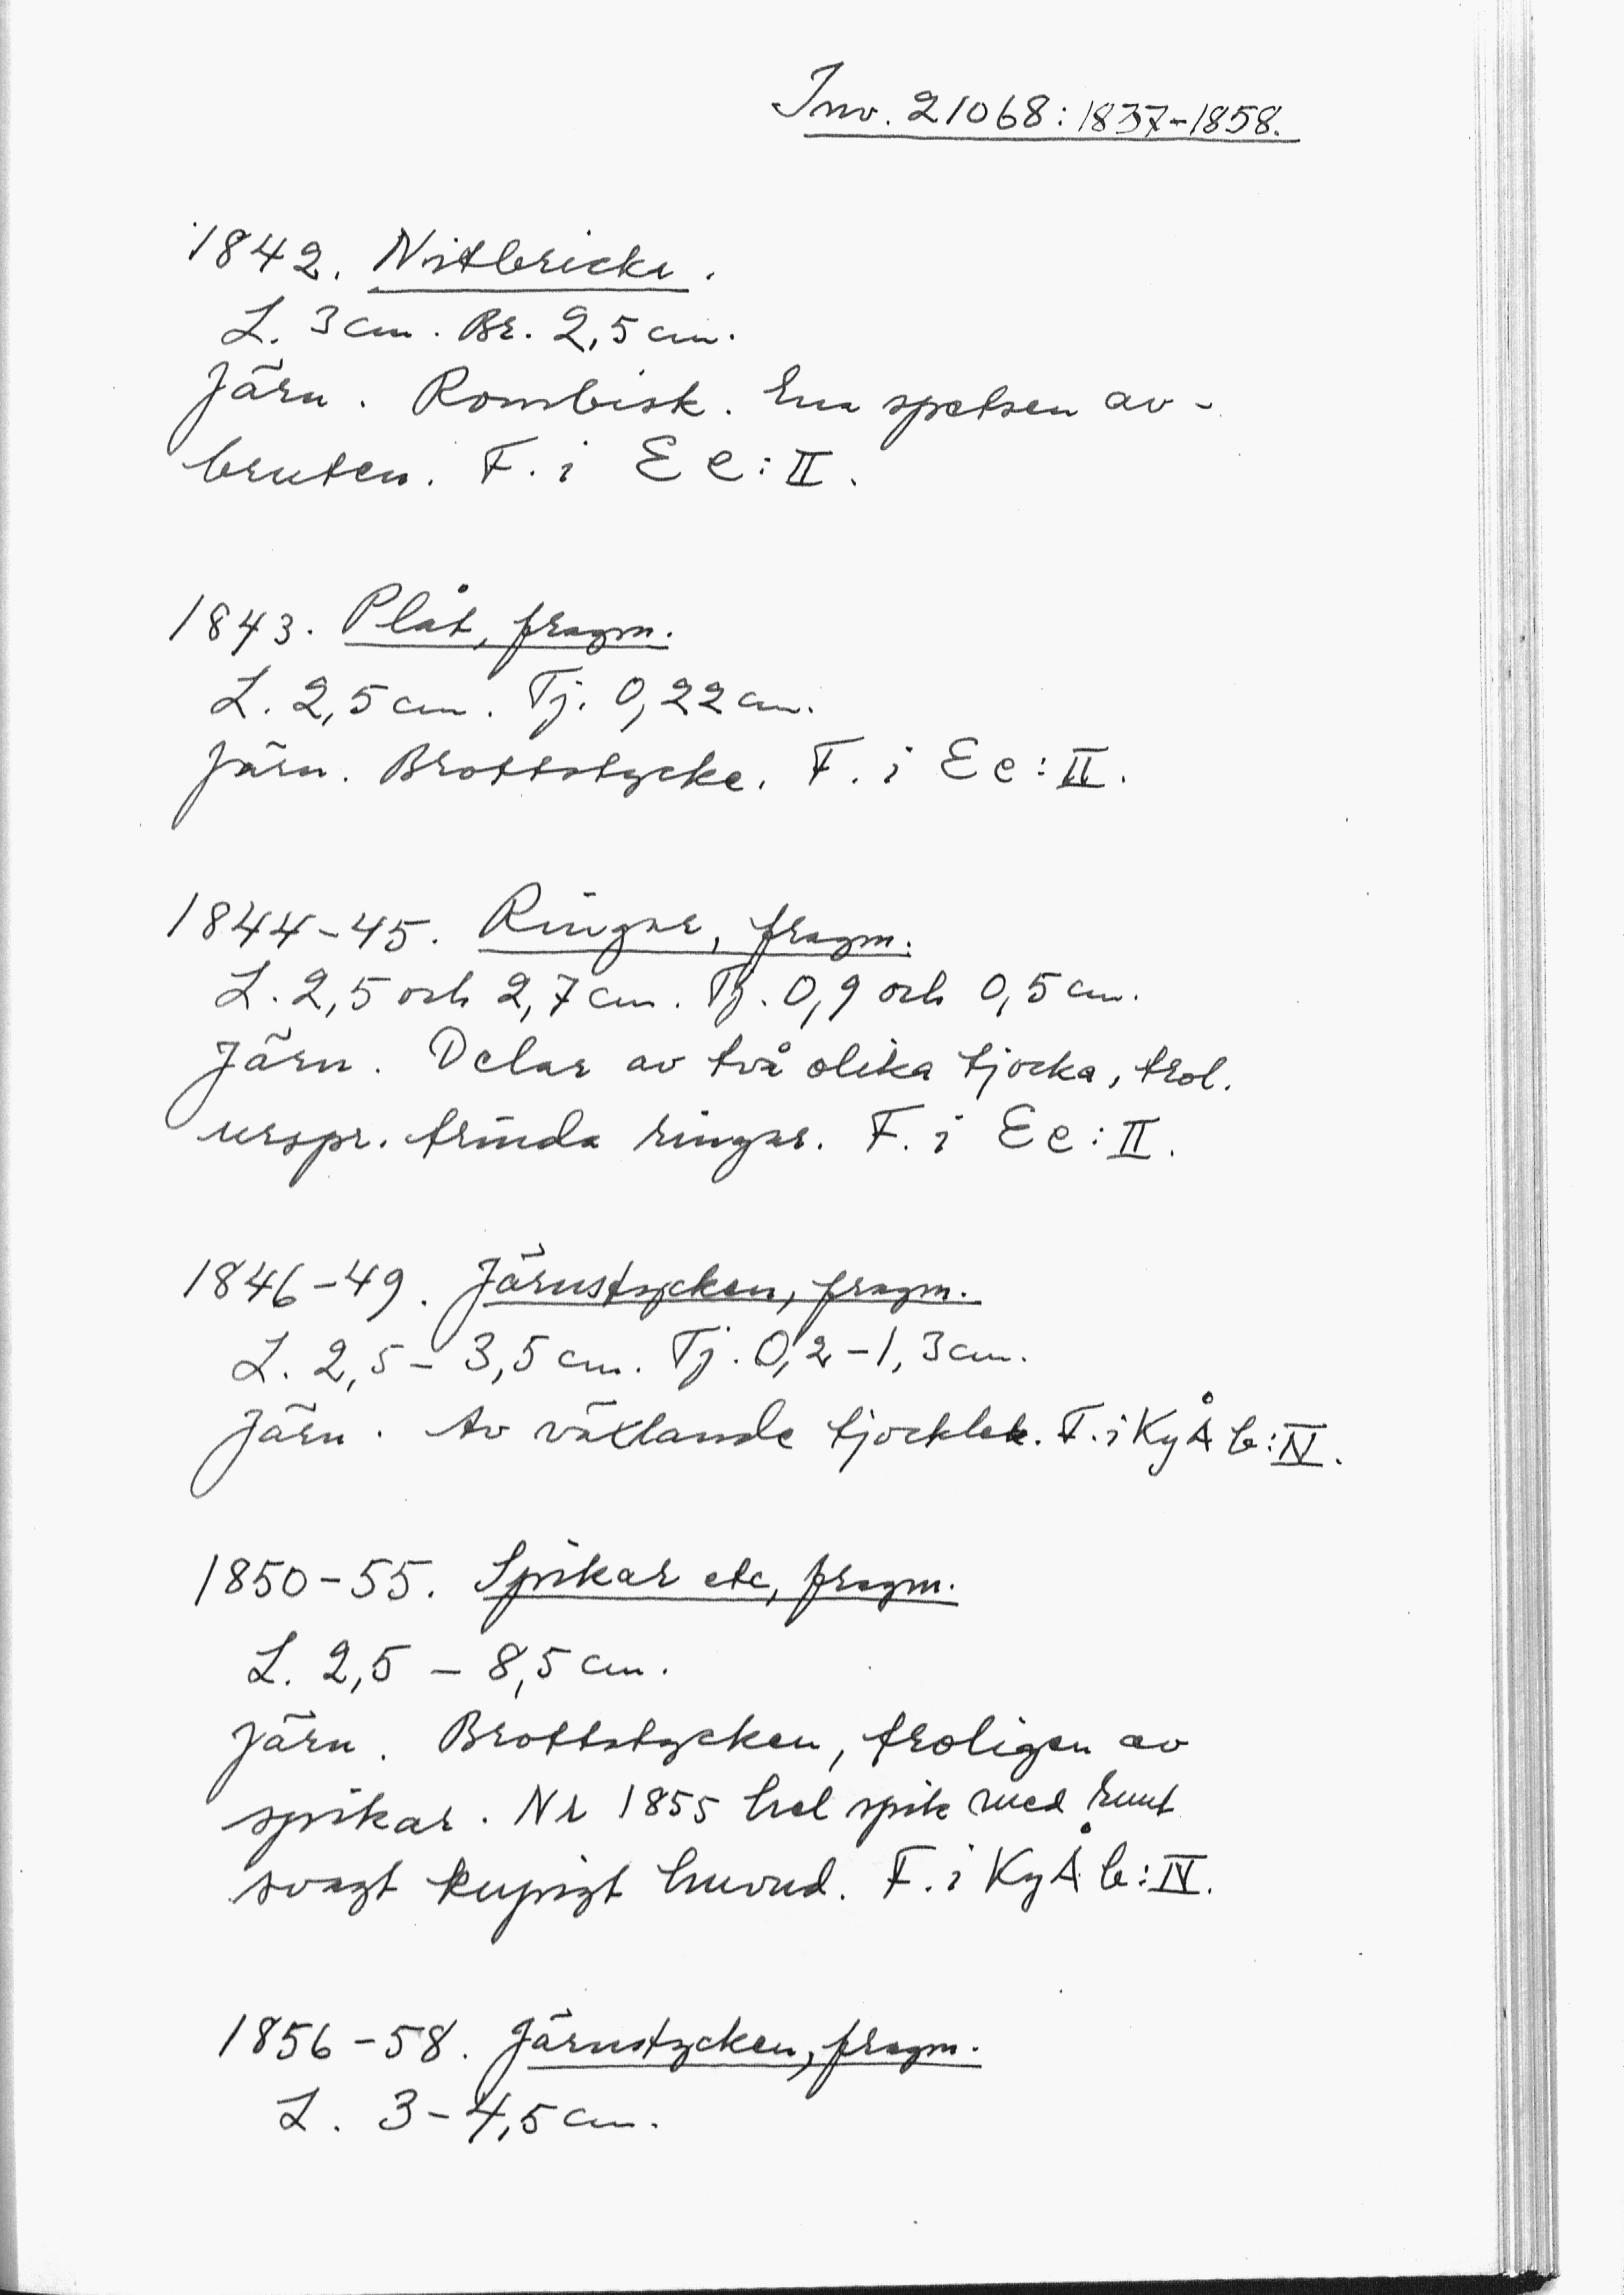 Inv. 21068:1837-1858.
1842. Nitbricka.
L. 3 cm. Br. 2,5 cm.
Järn. Rombisk. Ena spetsen av-
bruten. F. i Ee:II.
1843. Plåt, fragm.
L. 2,5 cm. Tj. 0,22 cm.
Järn. Brottstycke. F. i Ee:II.
1844-45. Ringar, fragm.
L. 2,5 och 2,7 cm. Tj. 0,9 och 0,5 cm.
Järn. Delar av två olika tjocka, trol.
urspr. trinda ringar. F. i Ee:II.
1846-49. Järnstycken, fragm.
L. 2,5-3,5 cm. Tj. 0,2-1,3 cm.
Järn. Av växlande tjocklek. F. i KyÅ b:IV.
1850-55. Spikar etc, fragm.
L. 2,5 - 8,5 cm.
Järn. Brottstycken, troligen av
spikar. Nr 1855 hel spik med runt
svagt kupigt huvud. F. i KyÅ b:IV.
1856-58. Järnstycken, fragm.
L. 3-4,5 cm.